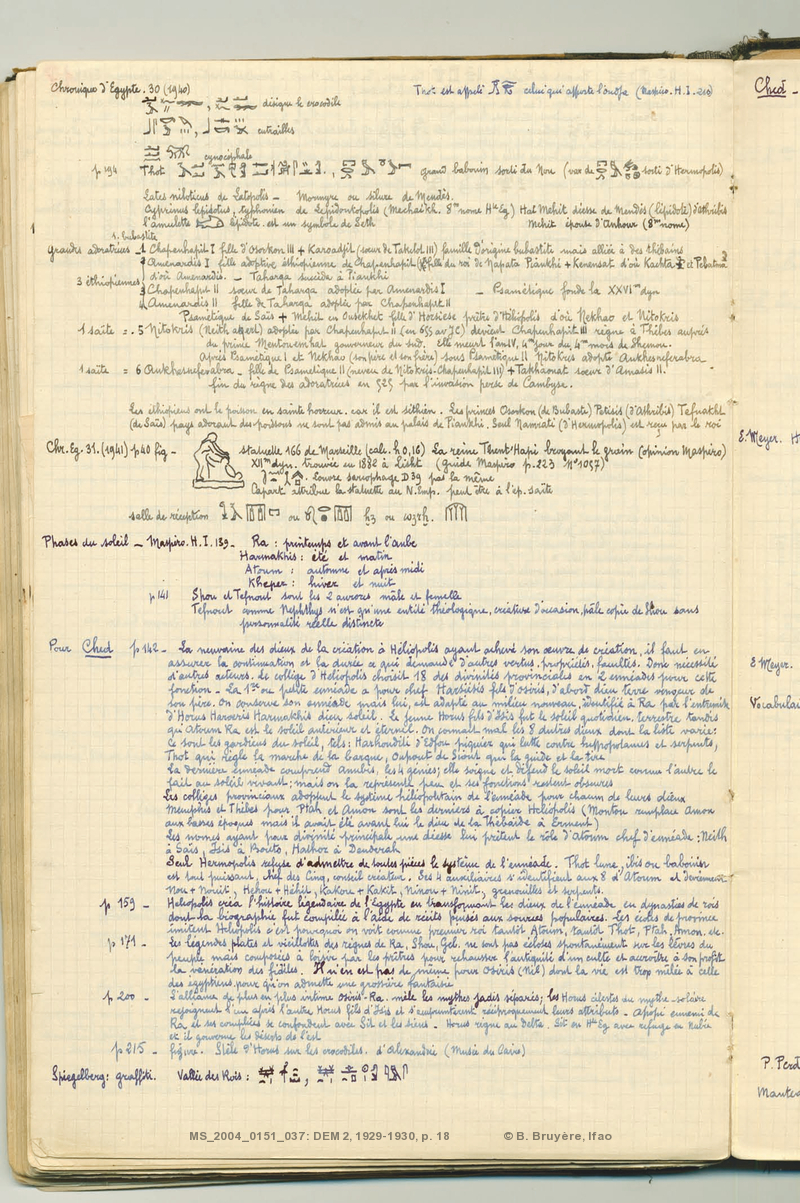 Chronique d'Egypte. 30 (1940)
Thot est appelé celui qui apporte l'oudja (Maspero. H. I. 210)
désigne le crocodile
entrailles
cynocéphale
p 194 Thot grand babouin sorti du Nou (var de sorti d'Hermopolis)
Lates niloticus de Latopolis _ Mormyre ou silure de Mendès.
Cyprinus lepidotus, typhonien de Lepidontopolis (Mechaikh. 8me nome Hte Eg) Hat Mehit déesse de Mendès (lépidote) d'athribis
l'amulette lépidote est un symbole de Seth Mehit épouse d'Anhour (8me nome)
s. bubastite
Grandes adoratrices 1 Chapenhapit I fille d'Osorkon III + Karoadjit (sœur de Takelot III) famille d'origine bubastite mais alliée à des thébains
2 Amenardis I fille adoptive éthiopienne de Chapenhapit fille du roi de Napata Piankhi + Kenensat d'où Kachta et Pebatma
3 éthiopiennes d'où Amenardis. _ Taharqa succéda à Piankhi
3 Chapenhapit II sœur de Taharqa adoptée par Amenardis I _ Psamétique fonde la XXVIme dyn
4 Amenardis II fille de Taharqa adoptée par Chapenhapit II
Psametique de Saïs + Mehit en Ousekhet fille d'Horsiese prêtre d'Héliopolis d'où Nekhao et Nitokris
1 saïte = . 5 Nitokris (Neith aqert) adoptée par Chapenhapit II (en 655 av JC) devient Chapenhapit III règne à Thèbes auprès
du prince Mentouemhat gouverneur du sud. elle meurt l'an IV, 4me jour du 4me mois de Shemou.
Après Psamétique I et Nekhao (son père et son frère) sous Psametique II Nitokris adopte Ankhesneferabra
1 saïte = 6 Ankhesneferabra _ fille de Psametique II (neveu de Nitokris-Chapenhapit III) + Takhaonat sœur d'Amasis II.
fin du règne des adoratrices en 525 par l'invasion perse de Cambyse.
Les éthiopiens ont le poisson en sainte horreur. car il est sithien. Les princes Osorkon (de Bubaste) Petisis (d'Athribis) Tefnakht
(de Saïs) pays adorant des poissons ne sont pas admis au palais de Piankhi. Seul Namrati (d'Hermopolis) est reçu par le roi
Chr. Eg. 31. (1941) p 40 fig _ statuette 166 de Marseille (calc. h 0,16) La reine Thent'Hapi broyant le grain (opinion Maspéro)
XIIme dyn. trouvée en 1882 à Lisht (Guide Maspero p. 223 N° 1057)
Louvre sarcophage D39 pas la même
Capart attribue la statuette au N. Emp. peut être à l'ép. saïte
salle de réception ou ou
Phases du soleil _ Maspéro. H. I. 139 _ Ra : printemps et avant l'aube
Harmakhis : été et matin
Atoum : automne et après midi
Kheper : hiver et nuit
p 141 Shou et Tefnout sont les 2 aurores mâle et femelle
Tefnout comme Nephthys n'est qu'une entité théologique, créature d'occasion, pâle copie de Shou sans
personnalité réelle distincte
Pour Ched p 142 _ La neuvaine des dieux de la création à Héliopolis ayant achevé son œuvre de création, il faut en
assurer la continuation et la durée ce qui demande d'autres vertus. propriétés. facultés. Donc nécessité
d'autres acteurs. Le collège d'Héliopolis choisit 18 des divinités provinciales en 2 ennéades pour cette
fonction _ La 1re ou petite ennéade a pour chef Harsiésis fils d'Osiris, d'abord dieu terre vengeur de
son père. On conserve son ennéade mais lui, est adapté au milieu nouveau, identifié à Ra par l'entremise
d'Horus Haroeris Harmakhis dieu soleil. Le jeune Horus fils d'Isis fut le soleil quotidien. terrestre tandis
qu'Atoum Ra est le soleil antérieur et éternel. On connait mal les 8 autres dieux dont la liste varie :
Ce sont les gardiens du soleil, tels : Harhouditi d'Edfou piquier qui lutte contre hippopotames et serpents,
Thot qui règle la marche de sa barque, Oupouat de Siout qui la guide et la tire
La dernière ennéade comprend Anubis, les 4 génies ; elle soigne et défend le soleil mort comme l'autre le
fait au soleil vivant ; mais on la représente peu et ses fonctions restent obscures
Les collèges provinciaux adoptent le système héliopolitain de l'ennéade pour chacun de leurs dieux
Memphis et Thèbes pour Ptah et Amon sont les derniers à copier Héliopolis (Montou remplace Amon
aux basses époques mais il avait été avant lui le dieu de la Thébaïde à Erment)
Les nomes ayant pour divinité principale une déesse lui prêtent le rôle d'Atoum chef d'ennéade : Neith
à Saïs, Isis à Bouto, Hathor à Denderah
Seul Hermopolis refuse d'admettre de toutes pièces le système de l'ennéade. Thot lune, ibis ou babouin
est tout puissant, chef des Cinq, conseil créateur. Ses 4 auxiliaires s'identifient aux 8 d'Atoum et deviennent
Nou + Nouit, Hehou + Héhit, Kakou + Kakit, Ninou + Ninit, grenouilles et serpents.
p 159 _ Héliopolis créa l'histoire légendaire de l'Egypte en transformant les dieux de l'ennéade en dynasties de rois
dont la biographie fut compilée à l'aide de récits puisés aux sources populaires. Les écoles de province
imitent Héliopolis c'est pourquoi on voit comme premier roi tantôt Atoum, tantôt Thot, Ptah, Amon. etc.
p 171 _ Les légendes plates et vieillottes des règnes de Ra, Shou, Geb. ne sont pas écloses spontanément sur les lèvres du
peuple mais composées à loisir par les prêtres pour rehausser l'antiquité d'un culte et accroître à son profit
la vénération des fidèles. Il n'en est pas de même pour Osiris (Nil) dont la vie est trop mêlée à celle
des égyptiens pour qu'on admette une grossière fantaisie
p 200 _ L'alliance de plus en plus intime Osiris-Ra. mêle les mythes jadis séparés ; les Horus célestes du mythe solaire
rejoignent l'un après l'autre Horus fils d'Isis et s'empruntèrent réciproquement leurs attributs _ Apopi ennemi de
Ra et ses complices se confondent avec Sit et les siens _ Horus règne au Delta. Sit en Hte Eg avec refuge en Nubie
et il gouverne les déserts de l'est
p 215 _ figure. Stèle d'Horus sur les crocodiles. d'Alexandrie (Musée du Caire)
Spiegelberg : graffiti. Vallée des Rois :
Ched _
E. Meyer. H
E Meyer.
Vocabulai
P. Perd
Mantes
MS_2004_0151_037: DEM 2, 1929-1930, p. 18 © B. Bruyère, Ifao